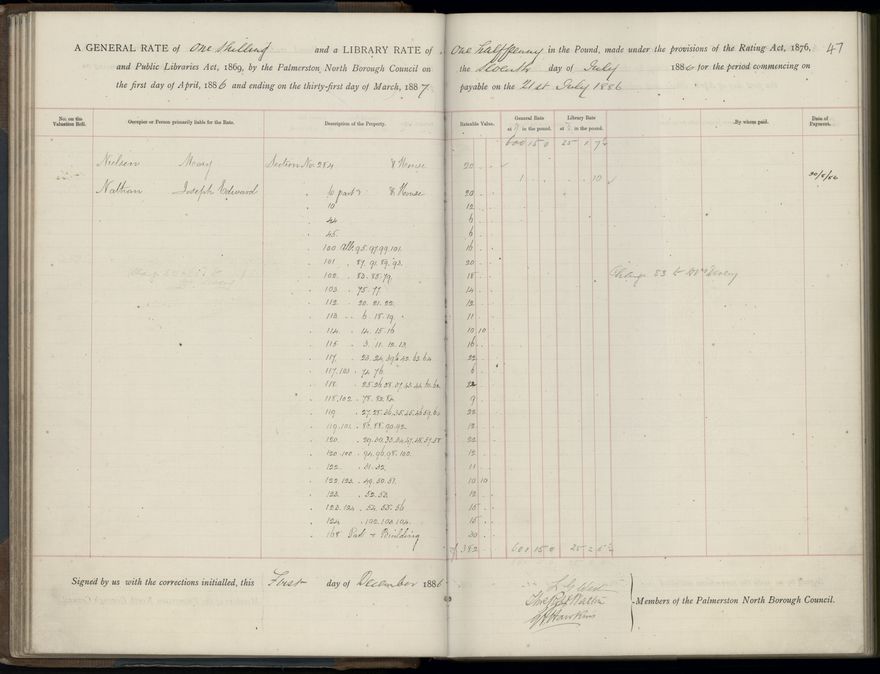 A GENERAL RATE of One Shilling and a LIBRARY RATE of One halfpenny in the Pound, made under the provisions of the Rating Act, 1876, 47
and Public Libraries Act, 1869, by the Palmerston North Borough Council on the Seventh day of July 1886 for the period commencing on
the first day of April, 1886 and ending on the thirty-first day of March, 1887, payable on the 21st July 1886
No. on the Valuation Roll. Occupier or Person primarily liable for the Rate. Description of the Property. Rateable Value. General Rate at in the pound. Library Rate at in the pound. By whom paid. Date of Payment.
600 15 0 25 1 7½
Nielsen Mary Section No. 284 & House 20
1 10
Nathan Joseph Edward 6 part & House 20
10 12
44 6
45 6
100 95.97.99.101 16
101 87.91.89.93 20
102 83.85.79 18 Change 83 to
103 75.77 14
112 20.21.22 12
113 6.18.19 11
114 14.15.16 10 10
115 3.11.12.13 16
117 22
117.101 74.76 6
118 22
118.102 78.82.84 9
119 22
119.101 86.88.90.92 12
120 22
120.100 94.96.98.100 12
122 31.32 11
122.123 49.50.51 10 10
123 52.53 12
123.124 54.55.56 15
124 102.103.104 15
168 Part & Building 30
382 600 15 0 25 2 5½
Signed by us with the corrections initialled, this First day of December 1886
Hawkins
Members of the Palmerston North Borough Council.